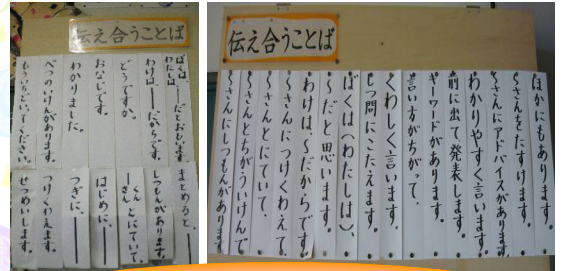 伝え合うことば
ぼくは、
わたしは、
――だとおもいます。
わけは、――だからです。
どうですか。
おなじです。
わかりました。
べつのいけんがあります。
もういちどいってください。
まとめると、――
しつもんがあります。
――くん
さんとにていて、
はじめに、――
つぎに、――
つけくわえます。
せつめいします。
伝え合うことば
ほかにもあります。
〜さんをたすけます。
〜さんにアドバイスがあります。
わかりやすく言います。
前に出て発表します。
キーワードがあります。
言い方がちがって、
くわしく言います。
しつ問にこたえます。
ぼくは(わたしは)、
〜だと思います。
わけは、〜だからです。
〜さんにつけくわえて、
〜さんとにていて、
〜さんとちがういけんで
〜さんにしつもんがあります